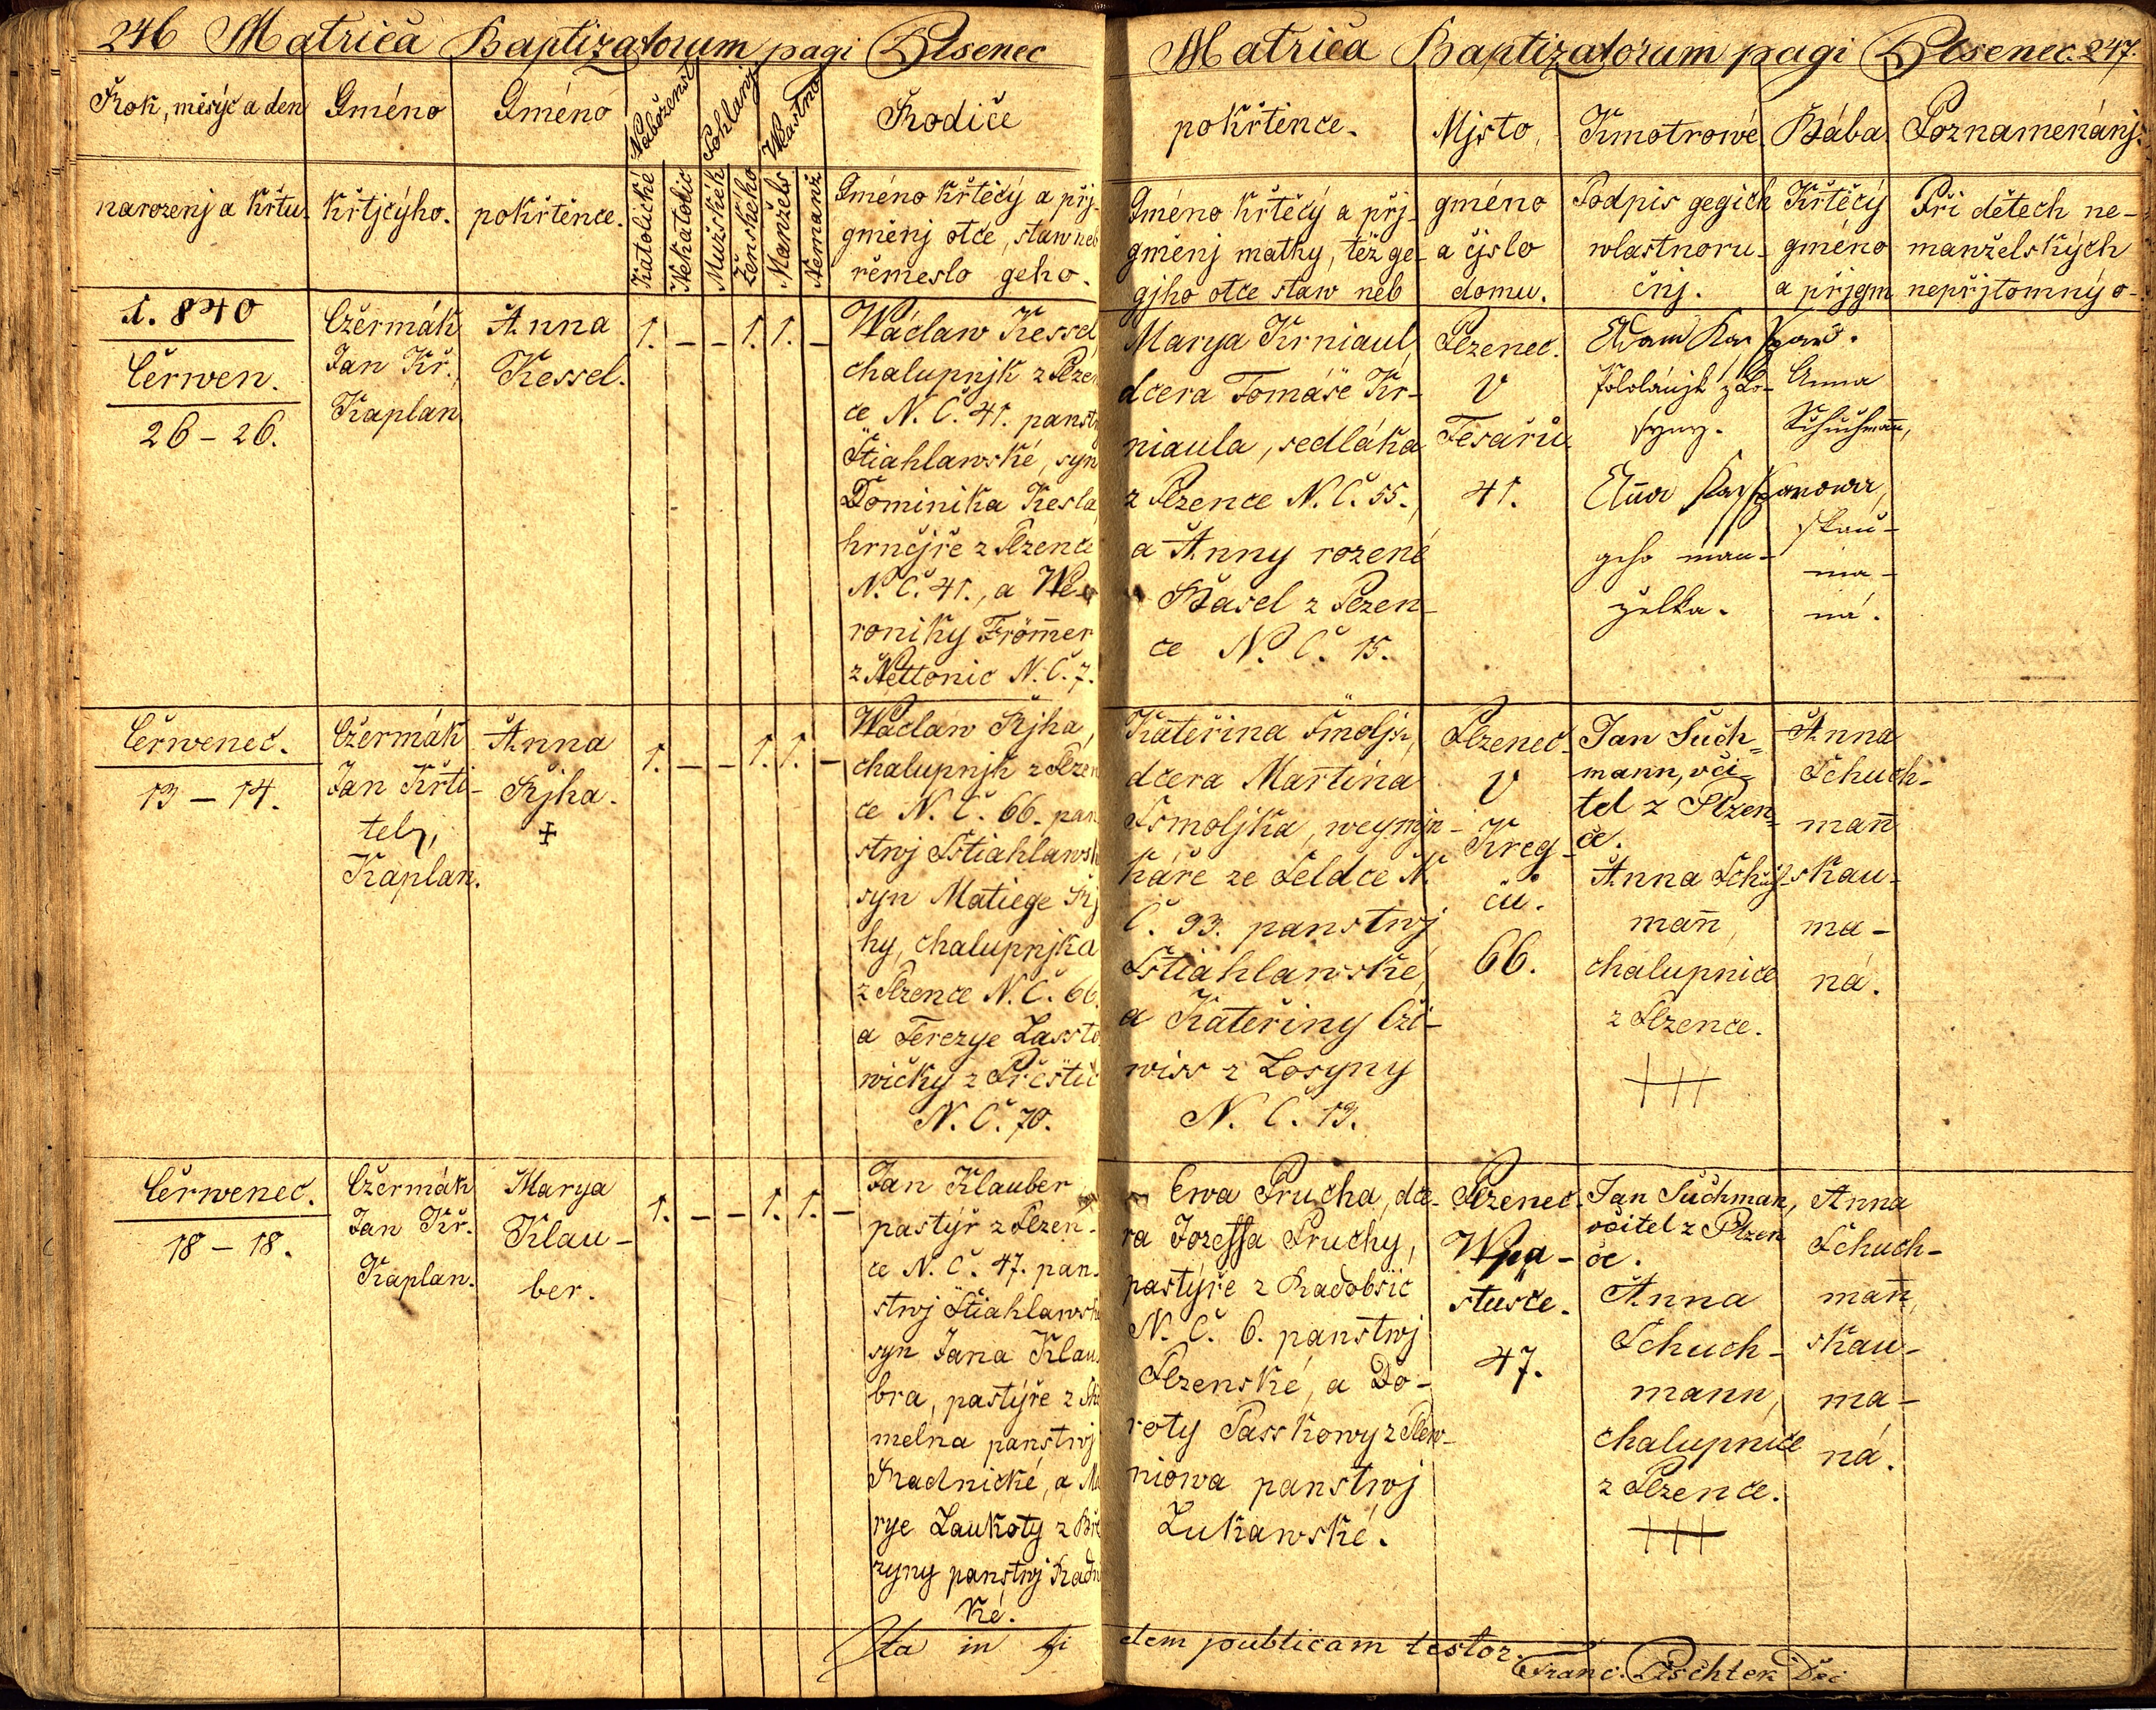 246 Matriča Baptizatorum pagi Plsenec
Rok, měsýc a den
narozenj a křtu.
Gméno
křtjcýho.
Gméno
pokřtěnce.
Nábožens
Pohlawj
Wlastno
Katolické
Nekatolic
Mužskéh
Ženského
Manžels
Nemanž
Rodiče
Gméno křtěcý a přj-
gměnj otce, staw neb
řemeslo geho.
1. 840
Čerwen.
26 – 26.
Cžermák
Jan Kř.
Kaplan.
Anna
Kessel.
1. – – 1. 1. –
Wáclaw Kessel,
chalupnjk z Plzen
ce N. Č. 41. panstw
Štiahlawské, syn
Dominika Kesla,
hrnčjře z Plzence
N. Č. 41., a We-
roniky Frömer
z Nettonic N. Č. 7.
Čerwenec.
13 – 14.
Cžermák
Jan Křti-
tel,
Kaplan.
Anna
Řjha.
+
1. – – 1. 1. –
Wáclaw Řjha,
chalupnjk z Plzen
ce N. Č. 66. pan
stwj Sstiahlawsk
syn Matiege Řj
hy, chalupnjka
z Plzence N. Č. 66.
a Terezye Lassto
wičky z Přestic
N. Č. 70.
Čerwenec.
18 – 18.
Cžermák
Jan Kř.
Kaplan.
Marya
Klau-
ber.
1. – – 1. 1. –
Jan Klauber
pastýř z Plzen-
ce N. Č. 47. pan-
stwj Štiahlawsk
syn Jana Klau
bra, pastýře z
melna panstwj
Radnické, a Ma
rye Laukoty z Bře
zyny panstwj Radn
ké.
Ita in fi
Matriča Baptizatorum pagi Plsenec. 247.
pokřtěnce.
Gméno křtěcý a přj-
gměnj matky, též ge-
gjho otce staw neb
Mjsto,
gméno
a čjslo
domu.
Kmotrowé.
Podpis gegich
wlastnoru-
čnj.
Bába.
Křtěcý
gméno
a přjgm
Poznamenánj.
Při dětech ne-
manželských
nepřjtomný o-
Marya Krniaul,
dcera Tomáše Kr-
niaula, sedláka
z Plzence N. Č. 55.,
a Anny rozené
Basel z Plzen-
ce N. Č. 15.
Plzenec.
U
Tesařů.
41.
Adam Kasspar.
Pololánjk z Lo-
syny.
Anna Kassparowa,
geho man-
želka.
Anna
Schuchmann,
skau-
ma-
ná.
Kateřina Smoljk,
dcera Martina
Ssmoljka, weymjn-
káře ze Seldce N.
Č. 33. panstwj
Sstiahlawské,
a Kateřiny Čži-
wiss z Losyny
N. Č. 13.
Plzenec.
U
Kreg-
čů.
66.
Jan Such-
mann, uči-
tel z Plzen-
ce.
Anna Schuch-
man̄,
chalupnice
z Plzence.
+++
Anna
Schuch-
man̄
skau-
ma-
ná.
Ewa Prucha, dce-
ra Jozeffa Pruchy,
pastýře z Radobšic
N. Č. 6. panstwj
Plzenské, a Do-
roty Passkowy z Plew-
niowa panstwj
Lukawské.
Plzenec.
W pa-
stušce.
47.
Jan Suchman,
učitel z Plzen
ce.
Anna
Schuch-
mann,
chalupnice
z Plzence.
+++
Anna
Schuch-
man̄,
skau-
ma-
ná.
dem publicam testor.
Franc. Pischtek Dec